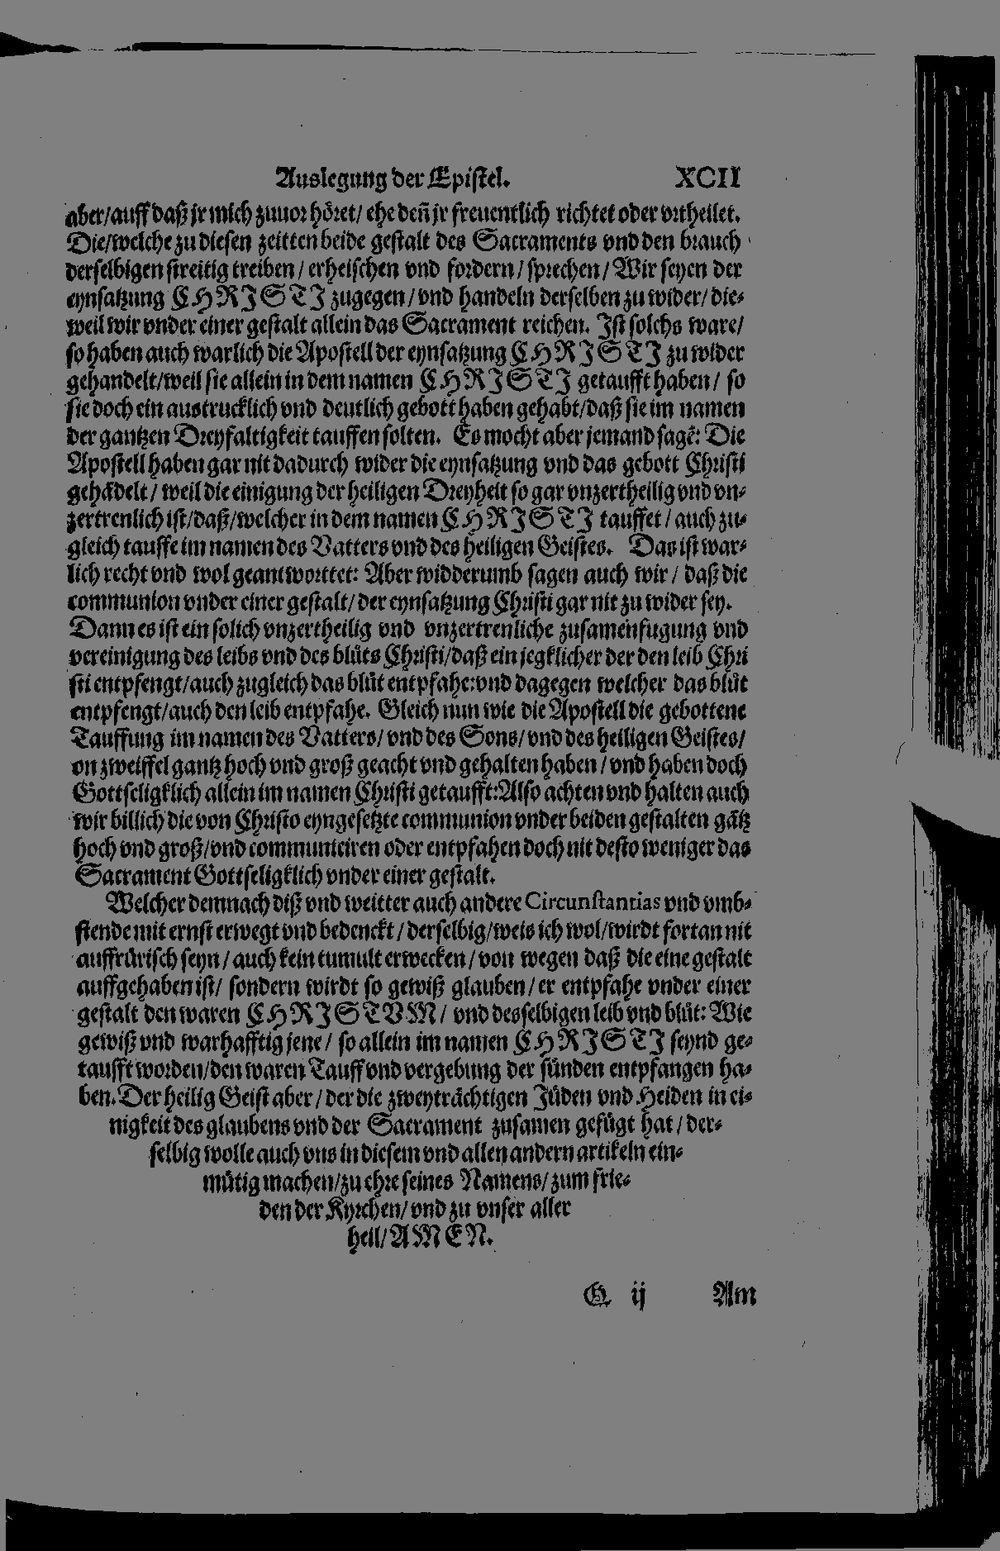 Auslegung der Epistel. XCII
aber/auff daß jr mich zuuor höret/ ehe deñ jr freuentlich richtet oder vrtheilet.
Die/welche zu diesen zeitten beide gestalt des Sacraments vnd den brauch
derselbigen streitig treiben/ erheischen vnd fordern/ sprechen/ Wir seyen der
eynsatzung CHRISTI zugegen/ vnd handeln derselben zu wider/ die-
weil wir vnder einer gestalt allein das Sacrament reichen. Ist solchs ware/
so haben auch warlich die Apostell der eynsatzung CHRISTI zu wider
gehandelt/weil sie allein in dem namen CHRISTI getaufft haben/ so
sie doch ein austrucklich vnd deutlich gebott haben gehabt/daß sie im namen
der gantzen Dreyfaltigkeit tauffen solten. Es mocht aber jemand sagẽ: Die
Apostell haben gar nit dadurch wider die eynsatzung vnd das gebott Christi
gehãdelt/ weil die einigung der heiligen Dreyheit so gar vnzertheilig vnd vn-
zertrenlich ist/daß/welcher in dem namen CHRISTI tauffet/ auch zu-
gleich tauffe im namen des Vatters vnd des heiligen Geistes. Das ist war-
lich recht vnd wol geantworttet: Aber widderumb sagen auch wir/ daß die
communion vnder einer gestalt/ der eynsatzung Christi gar nit zu wider sey.
Dann es ist ein solich vnzertheilig vnd vnzertrenliche zusamenfugung vnd
vereinigung des leibs vnd des blůts Christi/daß ein jegklicher der den leib Chri
sti entpfengt/auch zugleich das blůt entpfahe:vnd dagegen welcher das blůt
entpfengt/auch den leib entpfahe. Gleich nun wie die Apostell die gebottene
Tauffung im namen des Vatters/ vnd des Sons/ vnd des heiligen Geistes/
on zweiffel gantz hoch vnd groß geacht vnd gehalten haben/ vnd haben doch
Gottseligklich allein im namen Christi getaufft:Also achten vnd halten auch
wir billich die von Christo eyngesetzte communion vnder beiden gestalten gãtz
hoch vnd groß/vnd communiciren oder entpfahen doch nit desto weniger das
Sacrament Gottseligklich vnder einer gestalt.
Welcher demnach diß vnd weitter auch andere Circunstantias vnd vmb-
stende mit ernst erwegt vnd bedenckt/ derselbig/weis ich wol/wirdt fortan nit
auffrůrisch seyn/ auch kein tumult erwecken/ von wegen daß die eine gestalt
auffgehaben ist/ sondern wirdt so gewiß glauben/ er entpfahe vnder einer
gestalt den waren CHRISTVM/ vnd desselbigen leib vnd blůt: Wie
gewiß vnd warhafftig jene/ so allein im namen CHRISTI seynd ge-
taufft worden/den waren Tauff vnd vergebung der sünden entpfangen ha-
ben. Der heilig Geist aber/ der die zweyträchtigen Jüden vnd Heiden in ei-
nigkeit des glaubens vnd der Sacrament zusamen gefügt hat/ der-
selbig wolle auch vns in diesem vnd allen andern artikeln ein-
mütig machen/zu ehre seines Namens/ zum frie-
den der Kyrchen/ vnd zu vnser aller
heil/ AMEN.
G ij Am